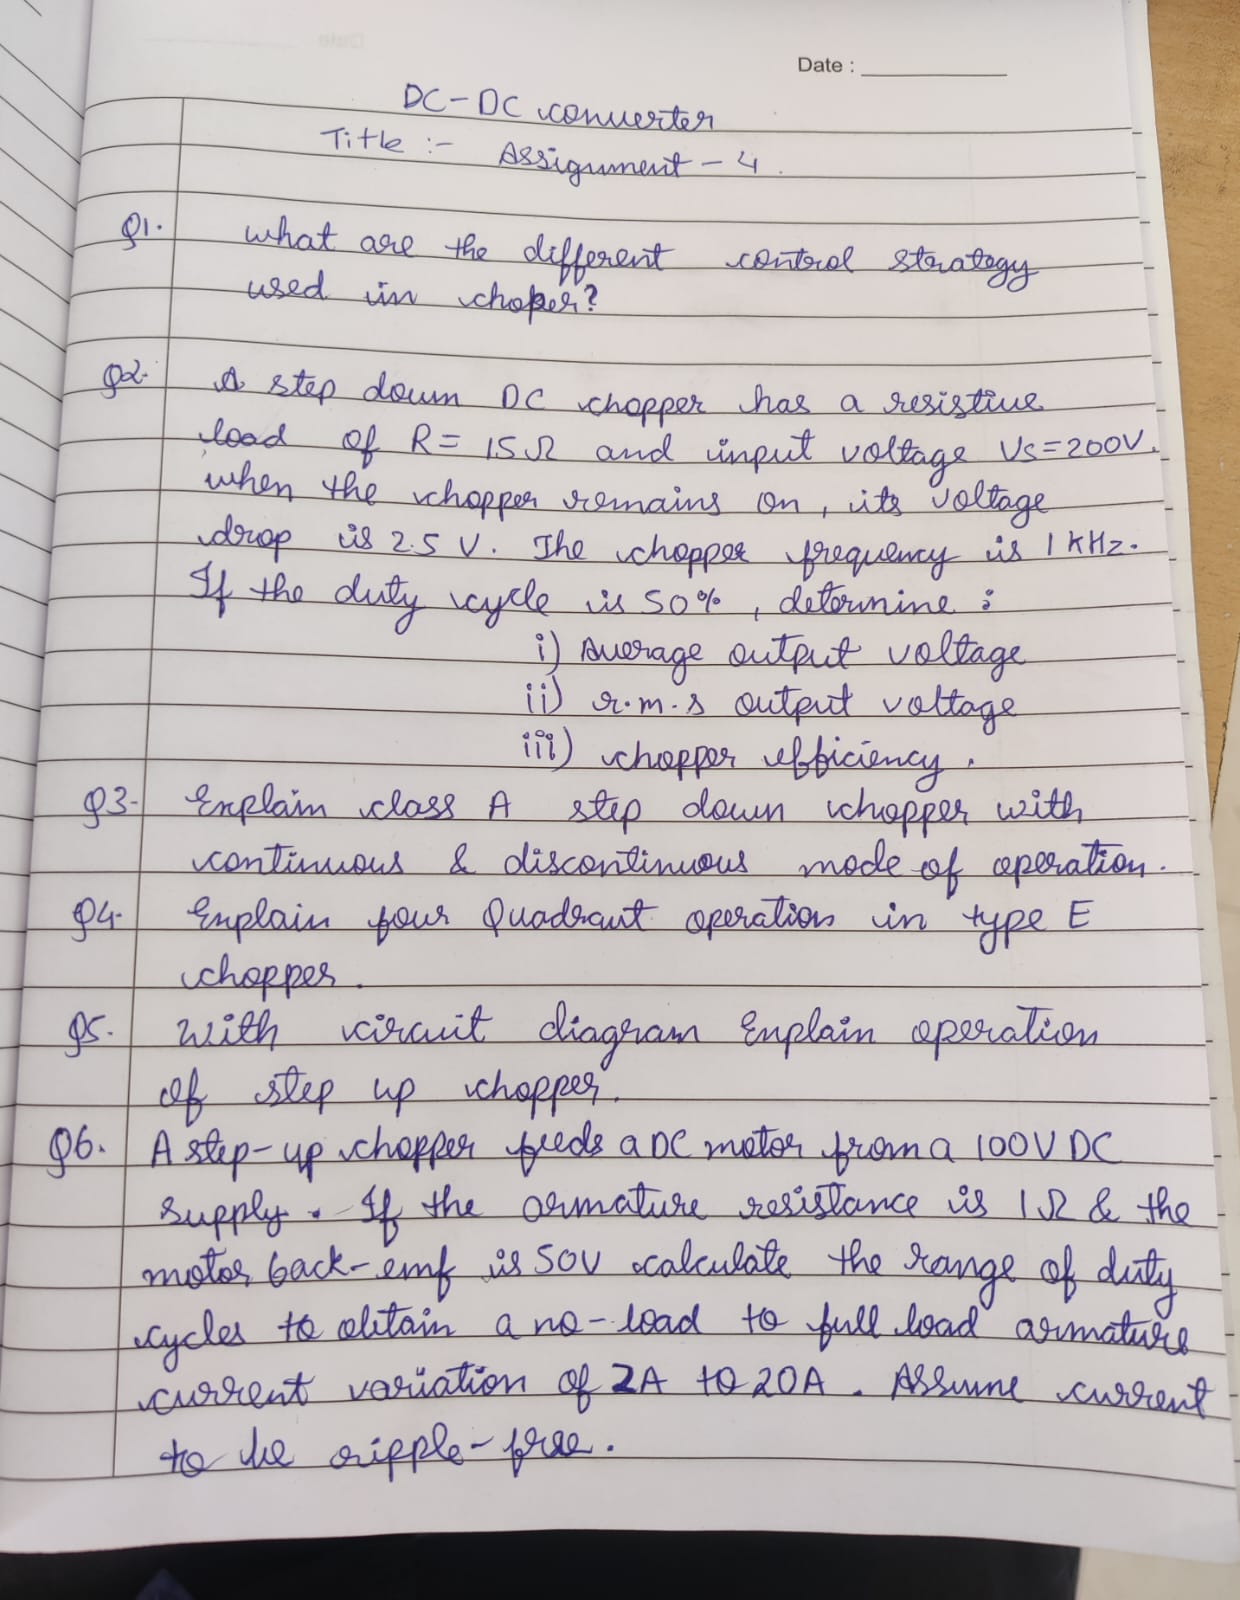 Date :
DC-DC converter
Title :- Assignment - 4.
Q1. what are the different control strategy
used in choper?
Q2. A step down DC chopper has a resistive
load of R= 15Ω and input voltage Vs=200V.
when the chopper remains on, its voltage
drop is 2.5 V. The chopper frequency is 1 KHz.
If the duty cycle is 50%, determine :
i) Average output voltage
ii) r.m.s output voltage
iii) chopper efficiency.
Q3- Explain class A step down chopper with
continuous & discontinuous mode of operation.
Q4- Explain four Quadrant operation in type E
chopper.
Q5. With circuit diagram Explain operation
of step up chopper.
Q6. A step-up chopper feeds a DC motor from a 100V DC
supply. If the armature resistance is 1Ω & the
motor back-emf is 50V calculate the range of duty
cycles to obtain a no-load to full load armature
current variation of 2A to 20A. Assume current
to be ripple-free.